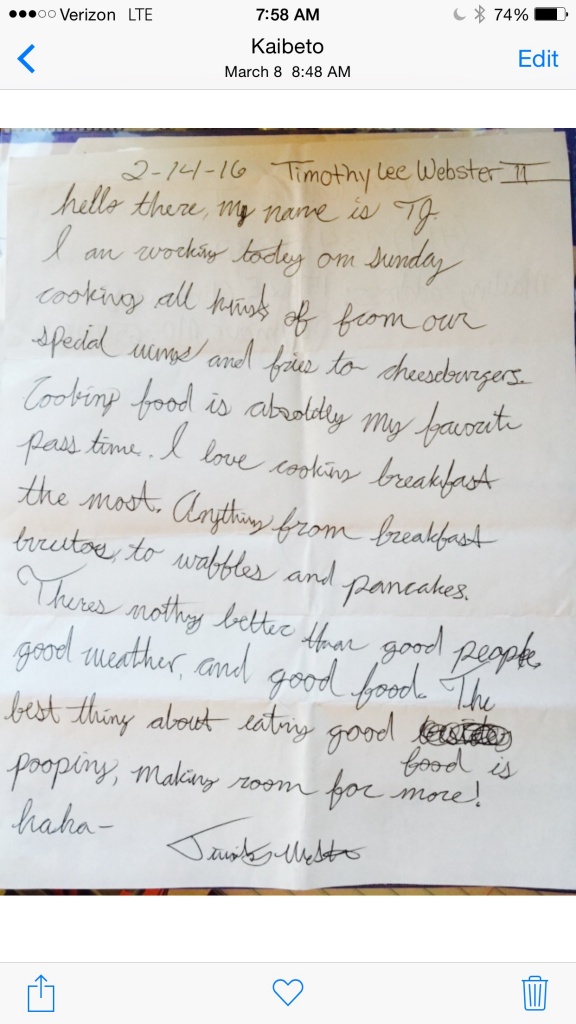 Verizon LTE 7:58 AM 74%
Kaibeto
March 8 8:48 AM
Edit
2-14-16 Timothy Lee Webster II
hello there, my name is TJ.
I am working today om sunday
cooking all kinds of from our
spedal wings and fries to cheeseburgers.
Cooking food is absoldly my favorite
pass time. I love cooking breakfast
the most. Anything from breakfast
burutos, to waffles and pancakes.
Theres nothing better than good people,
good weather, and good food. The
best thing about eating good
food is
pooping, making room for more!
haha-